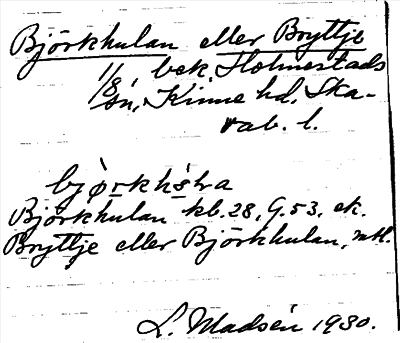 Björkhulan eller Bryttje
1/8, bek. Holmestads
sn, Kinne hd, Ska-
rab. l.
Björkhulan kb. 28, G. 53. ek.
Bryttje eller Björkhulan, mtl.
L. Madsén 1930.